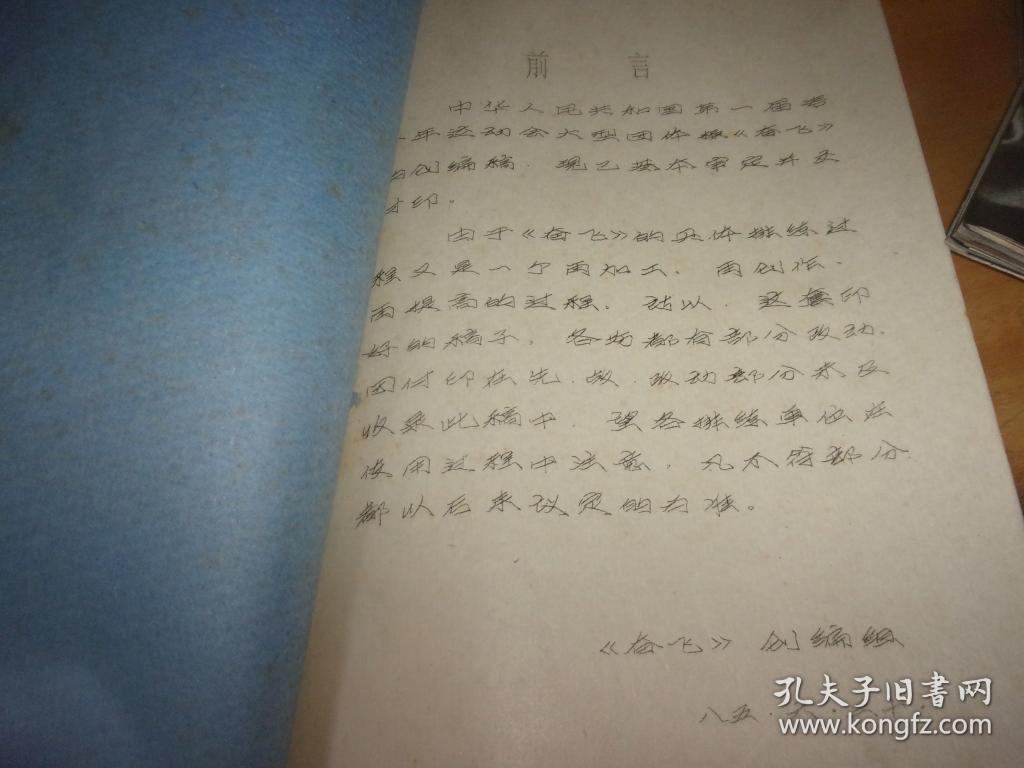 前言
中华人民共和国第一届青
年运动会大型团体操《奋飞》
的创编稿，现已基本审定并交
付印。
由于《奋飞》的具体排练过
程又是一个再加工、再创作、
再提高的过程，所以，这套印
好的稿子，各场都有部分改动。
因付印在先，故，改动部分未及
收录此稿中，望各排练单位在
使用过程中注意，凡不符部分
都以后来议定的为准。
《奋飞》创编组
八五.
孔夫子旧书网
www.kongfz.com